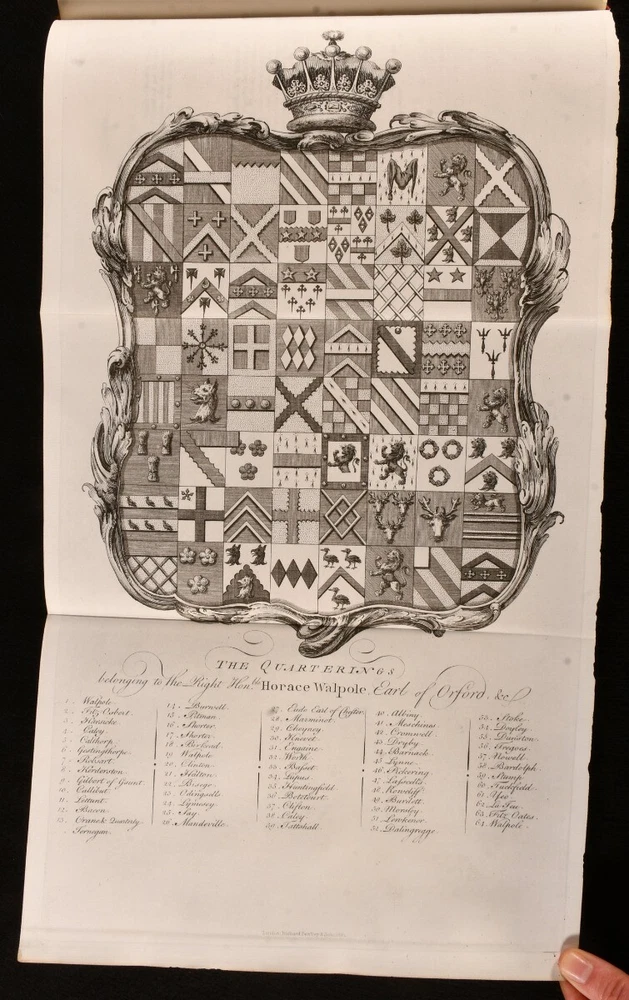 THE QUARTERINGS
belonging to the Right Hon.ble Horace Walpole, Earl of Orford, &c.
1. Walpole.
2. Fitz Osbert.
3.
4. Caley
5. Calthorp.
6. Gestingthorpe.
7. Robsart.
8. Kerderston.
9. Gilbert of Gaunt.
10. Callibut.
11.
12. Bacon.
13. Crane & Quaterly
Jernegan.
14. Burwell.
15. Pitman.
16. Shorter.
17. Shorter.
18.
19. Walpole.
20. Clinton.
21. Hilton.
22.
23. Odingsells.
24. Limesey.
25. Say.
26. Mandeville.
27. Earle Earl of Chester.
28. Marminot.
29. Cheyney.
30. Knevet.
31. Engaine.
32. Worth.
33. Basset.
34. Lupus.
35. Huntingfield.
36. Betetourt.
37. Clifton.
38. Caley.
39. Tattshall.
40. Albiny.
41. Meschines.
42. Cromwell.
43.
44. Barnack.
45. Lynne.
46. Pickering.
47. Lascelles.
48.
49. Burdett.
50.
51. Lewkenor.
52. Dalingrigge.
53. Stoke.
54. Doyley.
55. Daverton.
56. Tregoes.
57. Nowell.
58. Bardolph.
59. Stamp.
60. Tuckfield.
61. Yeo.
62.
63. Fitz Oates.
64. Walpole.